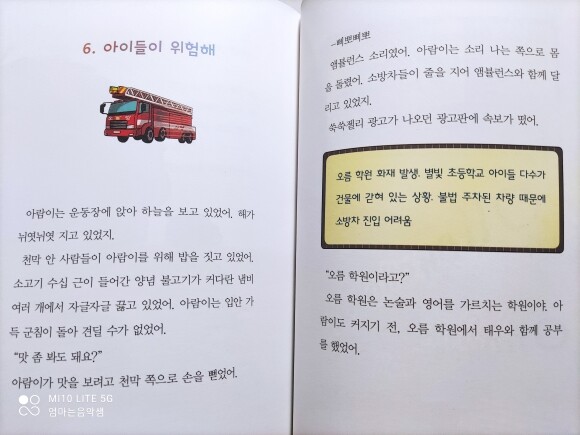 6. 아이들이 위험해
아람이는 운동장에 앉아 하늘을 보고 있었어. 해가
뉘엿뉘엿 지고 있었지.
천막 안 사람들이 아람이를 위해 밥을 짓고 있었어.
소고기 수십 근이 들어간 양념 불고기가 커다란 냄비
여러 개에서 자글자글 끓고 있었어. 아람이는 입안 가
득 군침이 돌아 견딜 수가 없었어.
"맛 좀 봐도 돼요?"
아람이가 맛을 보려고 천막 쪽으로 손을 뻗었어.
MI10 LITE 5G
엄마는음악샘
–삐뽀삐뽀
앰뷸런스 소리였어. 아람이는 소리 나는 쪽으로 몸
을 돌렸어. 소방차들이 줄을 지어 앰뷸런스와 함께 달
리고 있었지.
쑥쑥젤리 광고가 나오던 광고판에 속보가 떴어.
오름 학원 화재 발생. 별빛 초등학교 아이들 다수가
건물에 갇혀 있는 상황. 불법 주차된 차량 때문에
소방차 진입 어려움
"오름 학원이라고?"
오름 학원은 논술과 영어를 가르치는 학원이야. 아
람이도 커지기 전, 오름 학원에서 태우와 함께 공부
를 했었어.